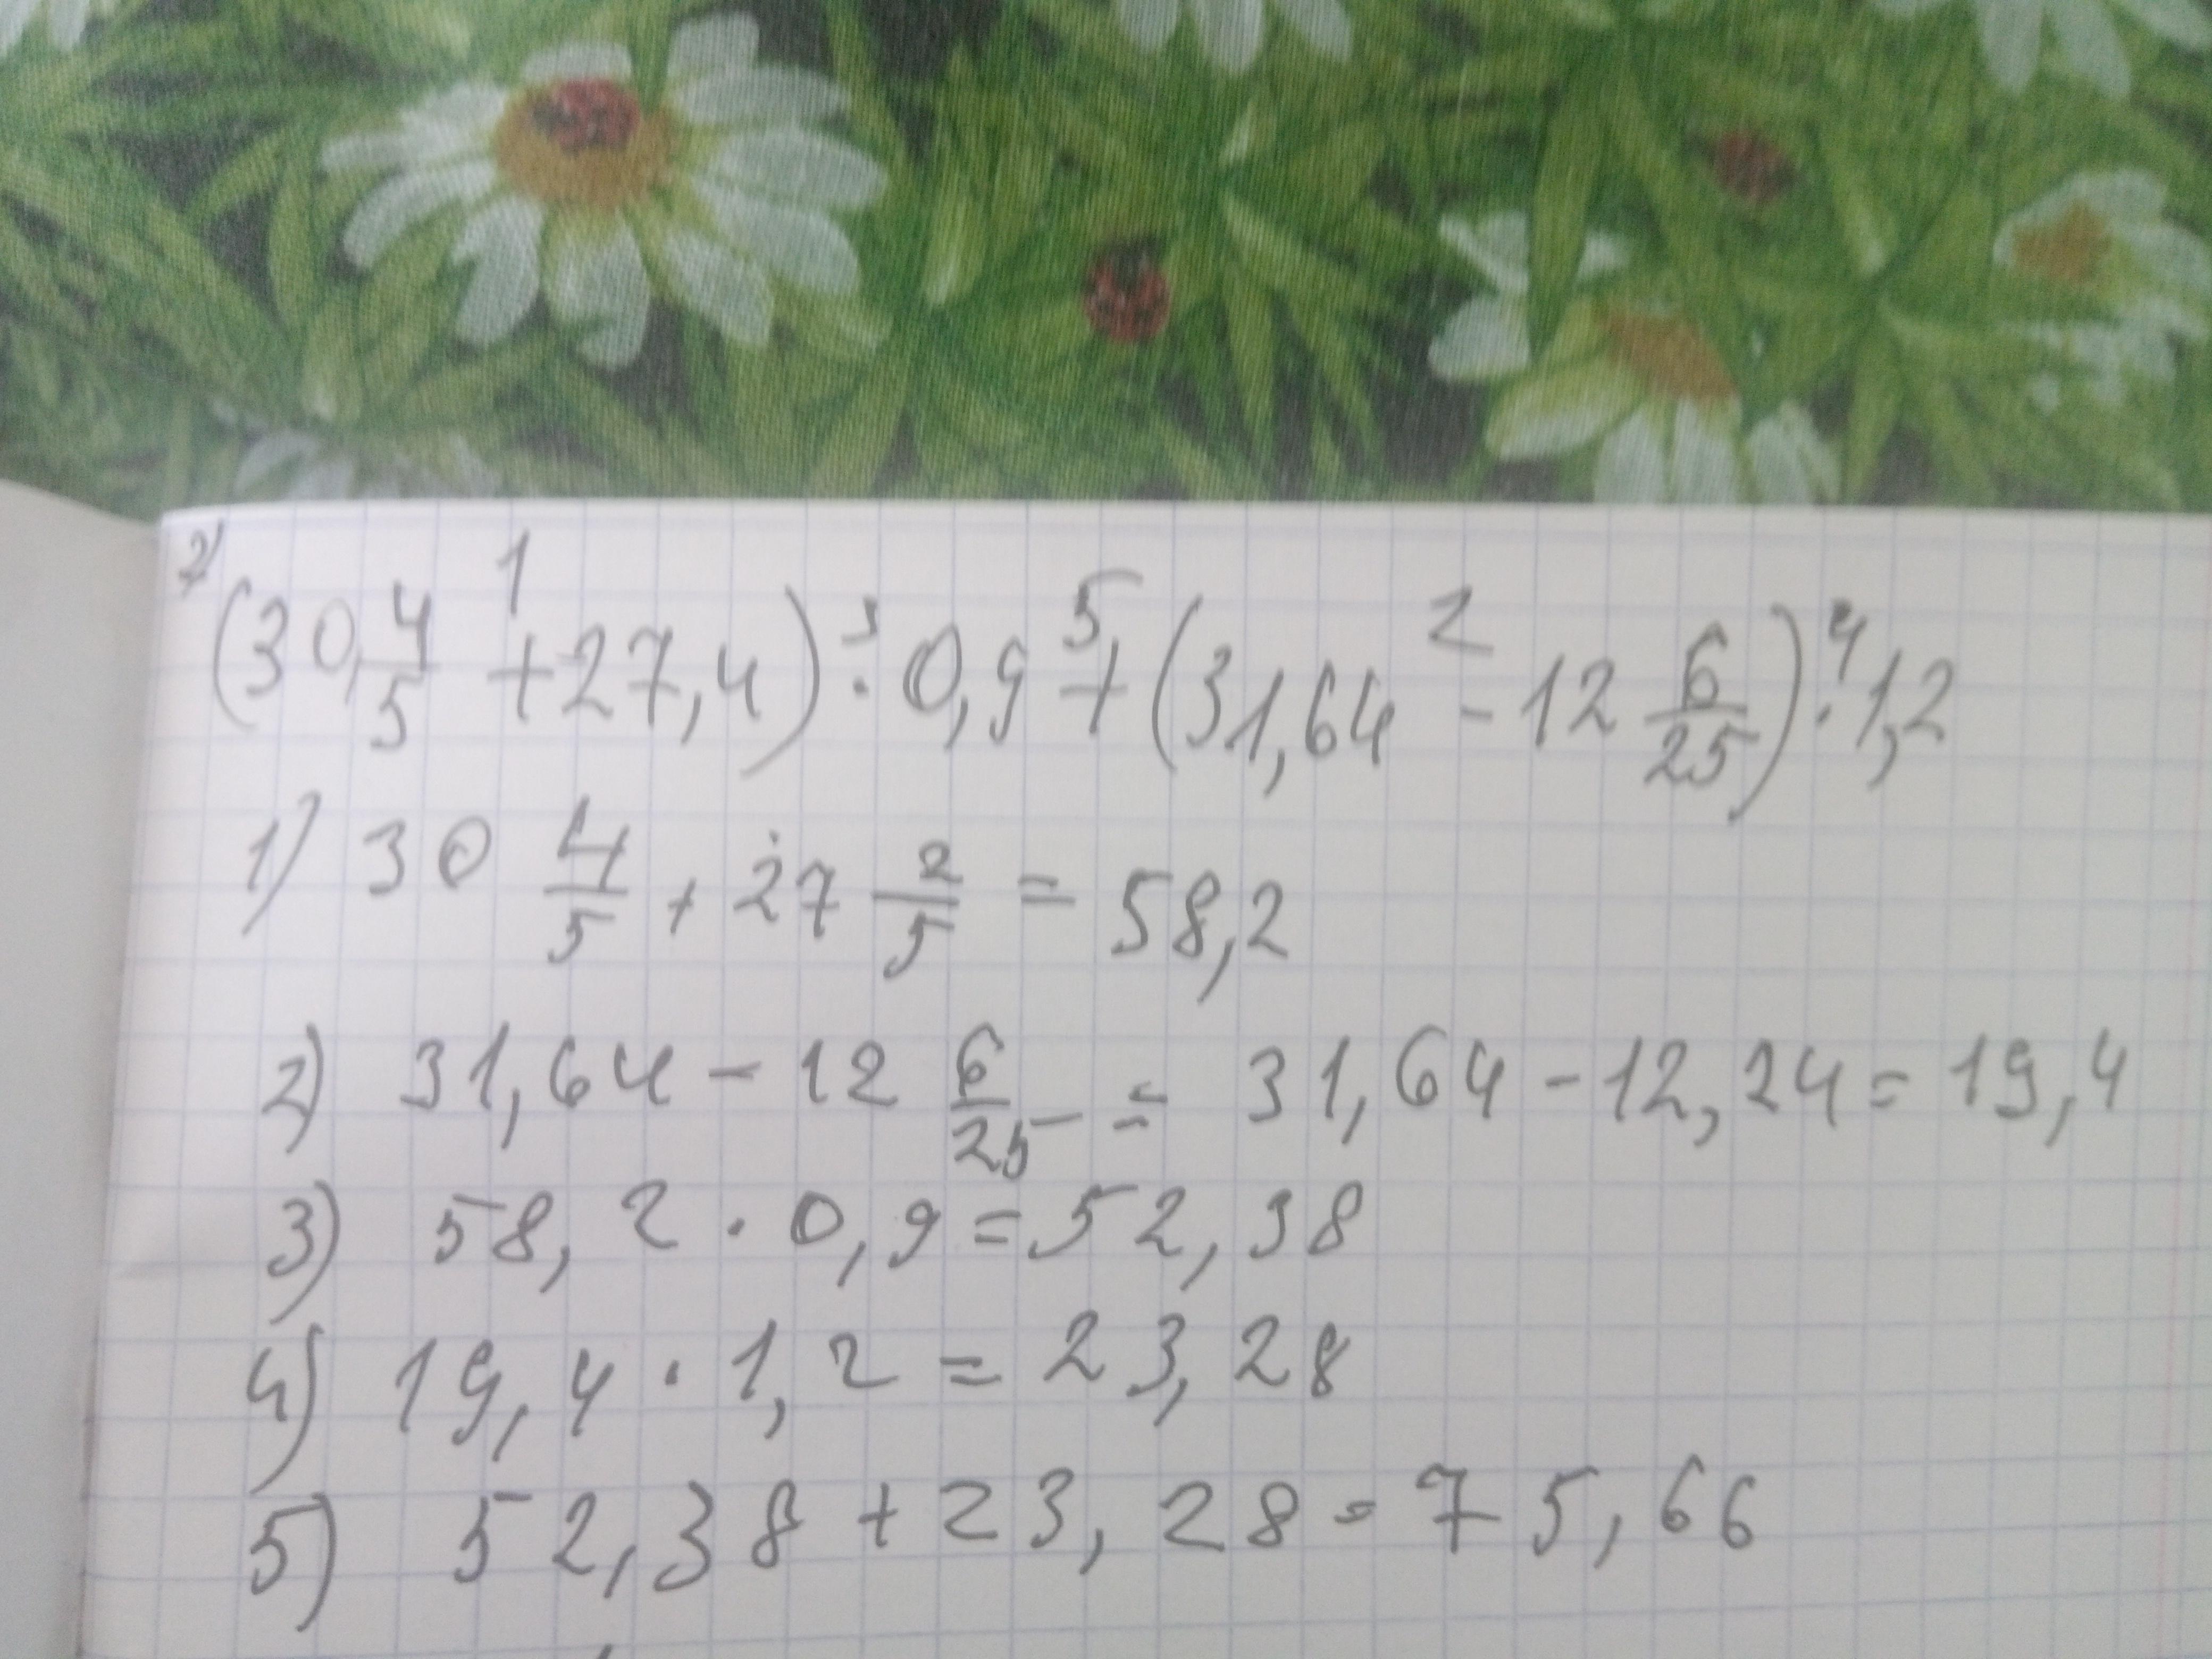 2) (30 4/5 + 27,4) · 0,9 + (31,64 - 12 6/25) · 1,2
1) 30 4/5 + 27 2/5 = 58,2
2) 31,64 - 12 6/25 = 31,64 - 12,24 = 19,4
3) 58,2 · 0,9 = 52,38
4) 19,4 · 1,2 = 23,28
5) 52,38 + 23,28 = 75,66